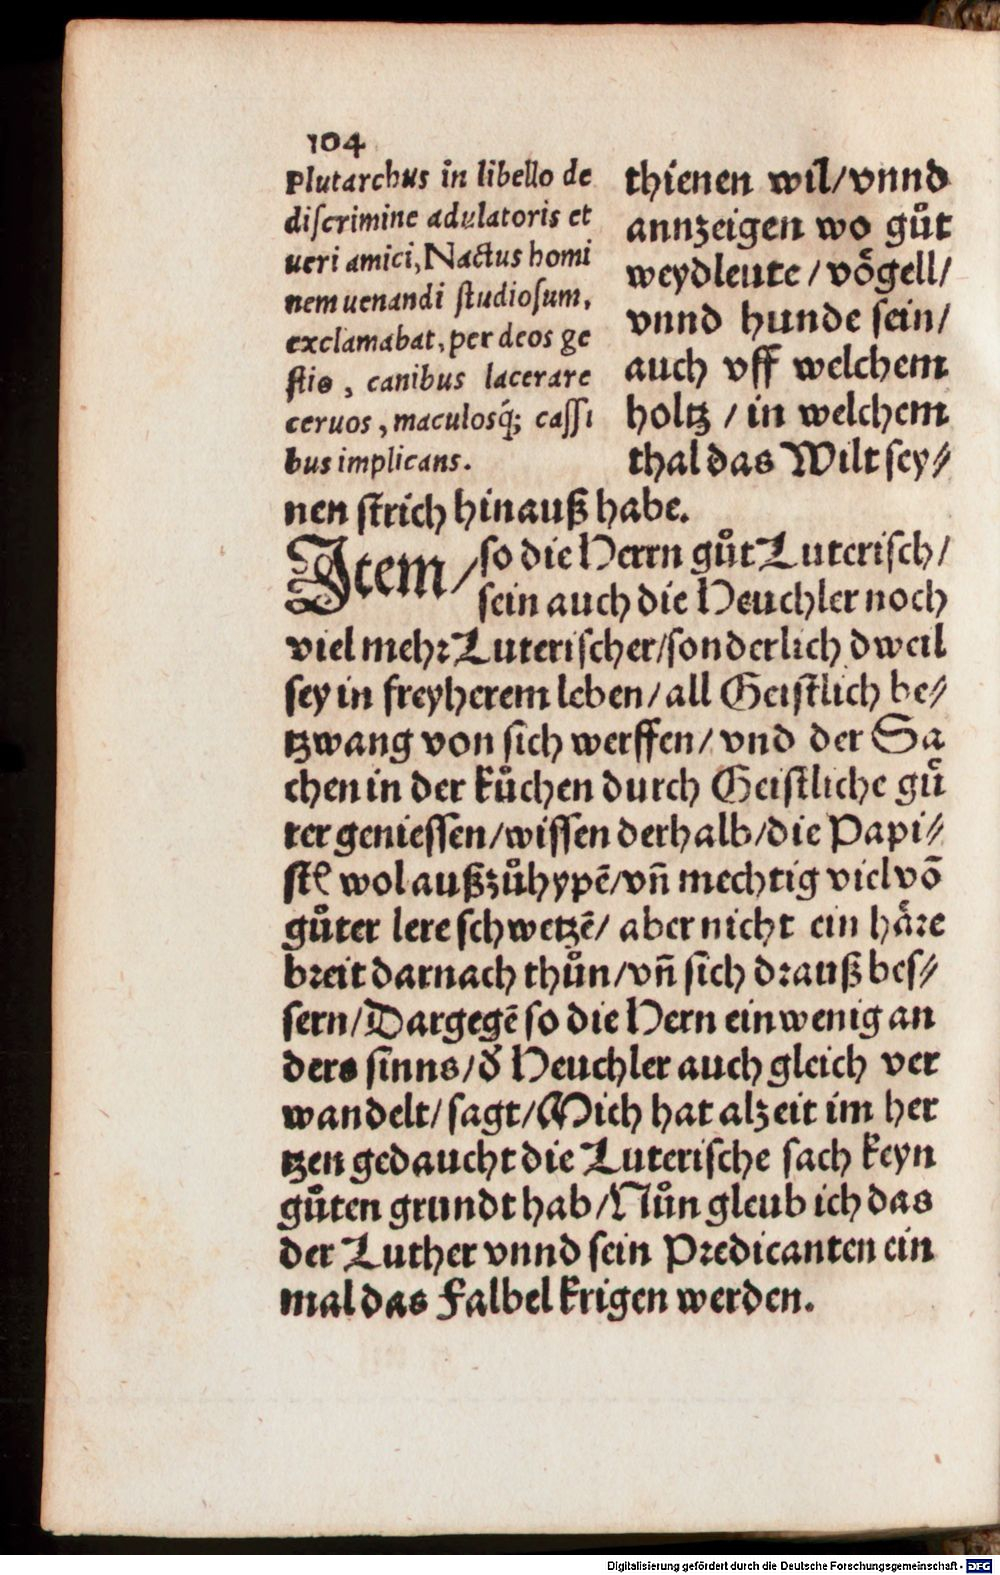 104
Plutarchus in libello de
diſcrimine adulatoris et
ueri amici, Nactus homi
nem uenandi ſtudioſum,
exclamabat, per deos ge
ſtio, canibus lacerare
ceruos, maculosq́; caſſi
bus implicans.
thienen wil/ vnnd
annzeigen wo gůt
weydleute / voͤgell/
vnnd hunde ſein/
auch vff welchem
holtz / in welchem
thal das Wilt ſey⸗
nen ſtrich hinauß habe.
Item/ so die Herrn gůt Luteriſch/
ſein auch die Heuchler noch
viel mehr Luteriſcher/ſonderlich dweil
ſey in freyherem leben/ all Geiſtlich be⸗
tzwang von ſich werffen/ vnd der Sa
chen in der kůchen durch Geiſtliche guͤ
ter genieſſen/wiſſen derhalb/die Papi⸗
ſtē wol außzůhypē/vn̄ mechtig viel vō
gůter lere ſchwetzē/ aber nicht ein haͤre
breit darnach thůn/vn̄ ſich drauß beſ⸗
ſern/Dargegē ſo die Hern ein wenig an
ders ſinns/ď Heuchler auch gleich ver
wandelt/ ſagt/Mich hat alzeit im her
tzen gedaucht die Luteriſche ſach keyn
gůten grundt hab/Nůn gleub ich das
der Luther vnnd ſein Predicanten ein
mal das Falbel krigen werden.
Digitalisierung gefördert durch die Deutsche Forschungsgemeinschaft - DFG